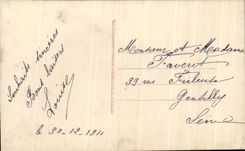 Souhaits sincères
Bons baisers
Louise
Le 30-12-1911
Monsieur et Madame
Faverot
39 rue Frileuse
Gentilly
Seine